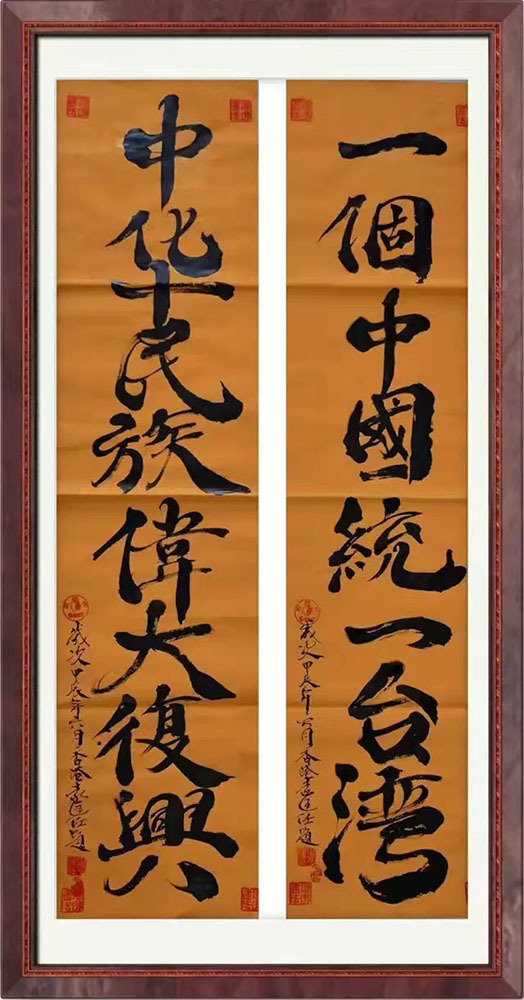 一個中國統一台湾
歲次甲辰年六月香港
中华民族偉大復興
歲次甲辰年六月香港